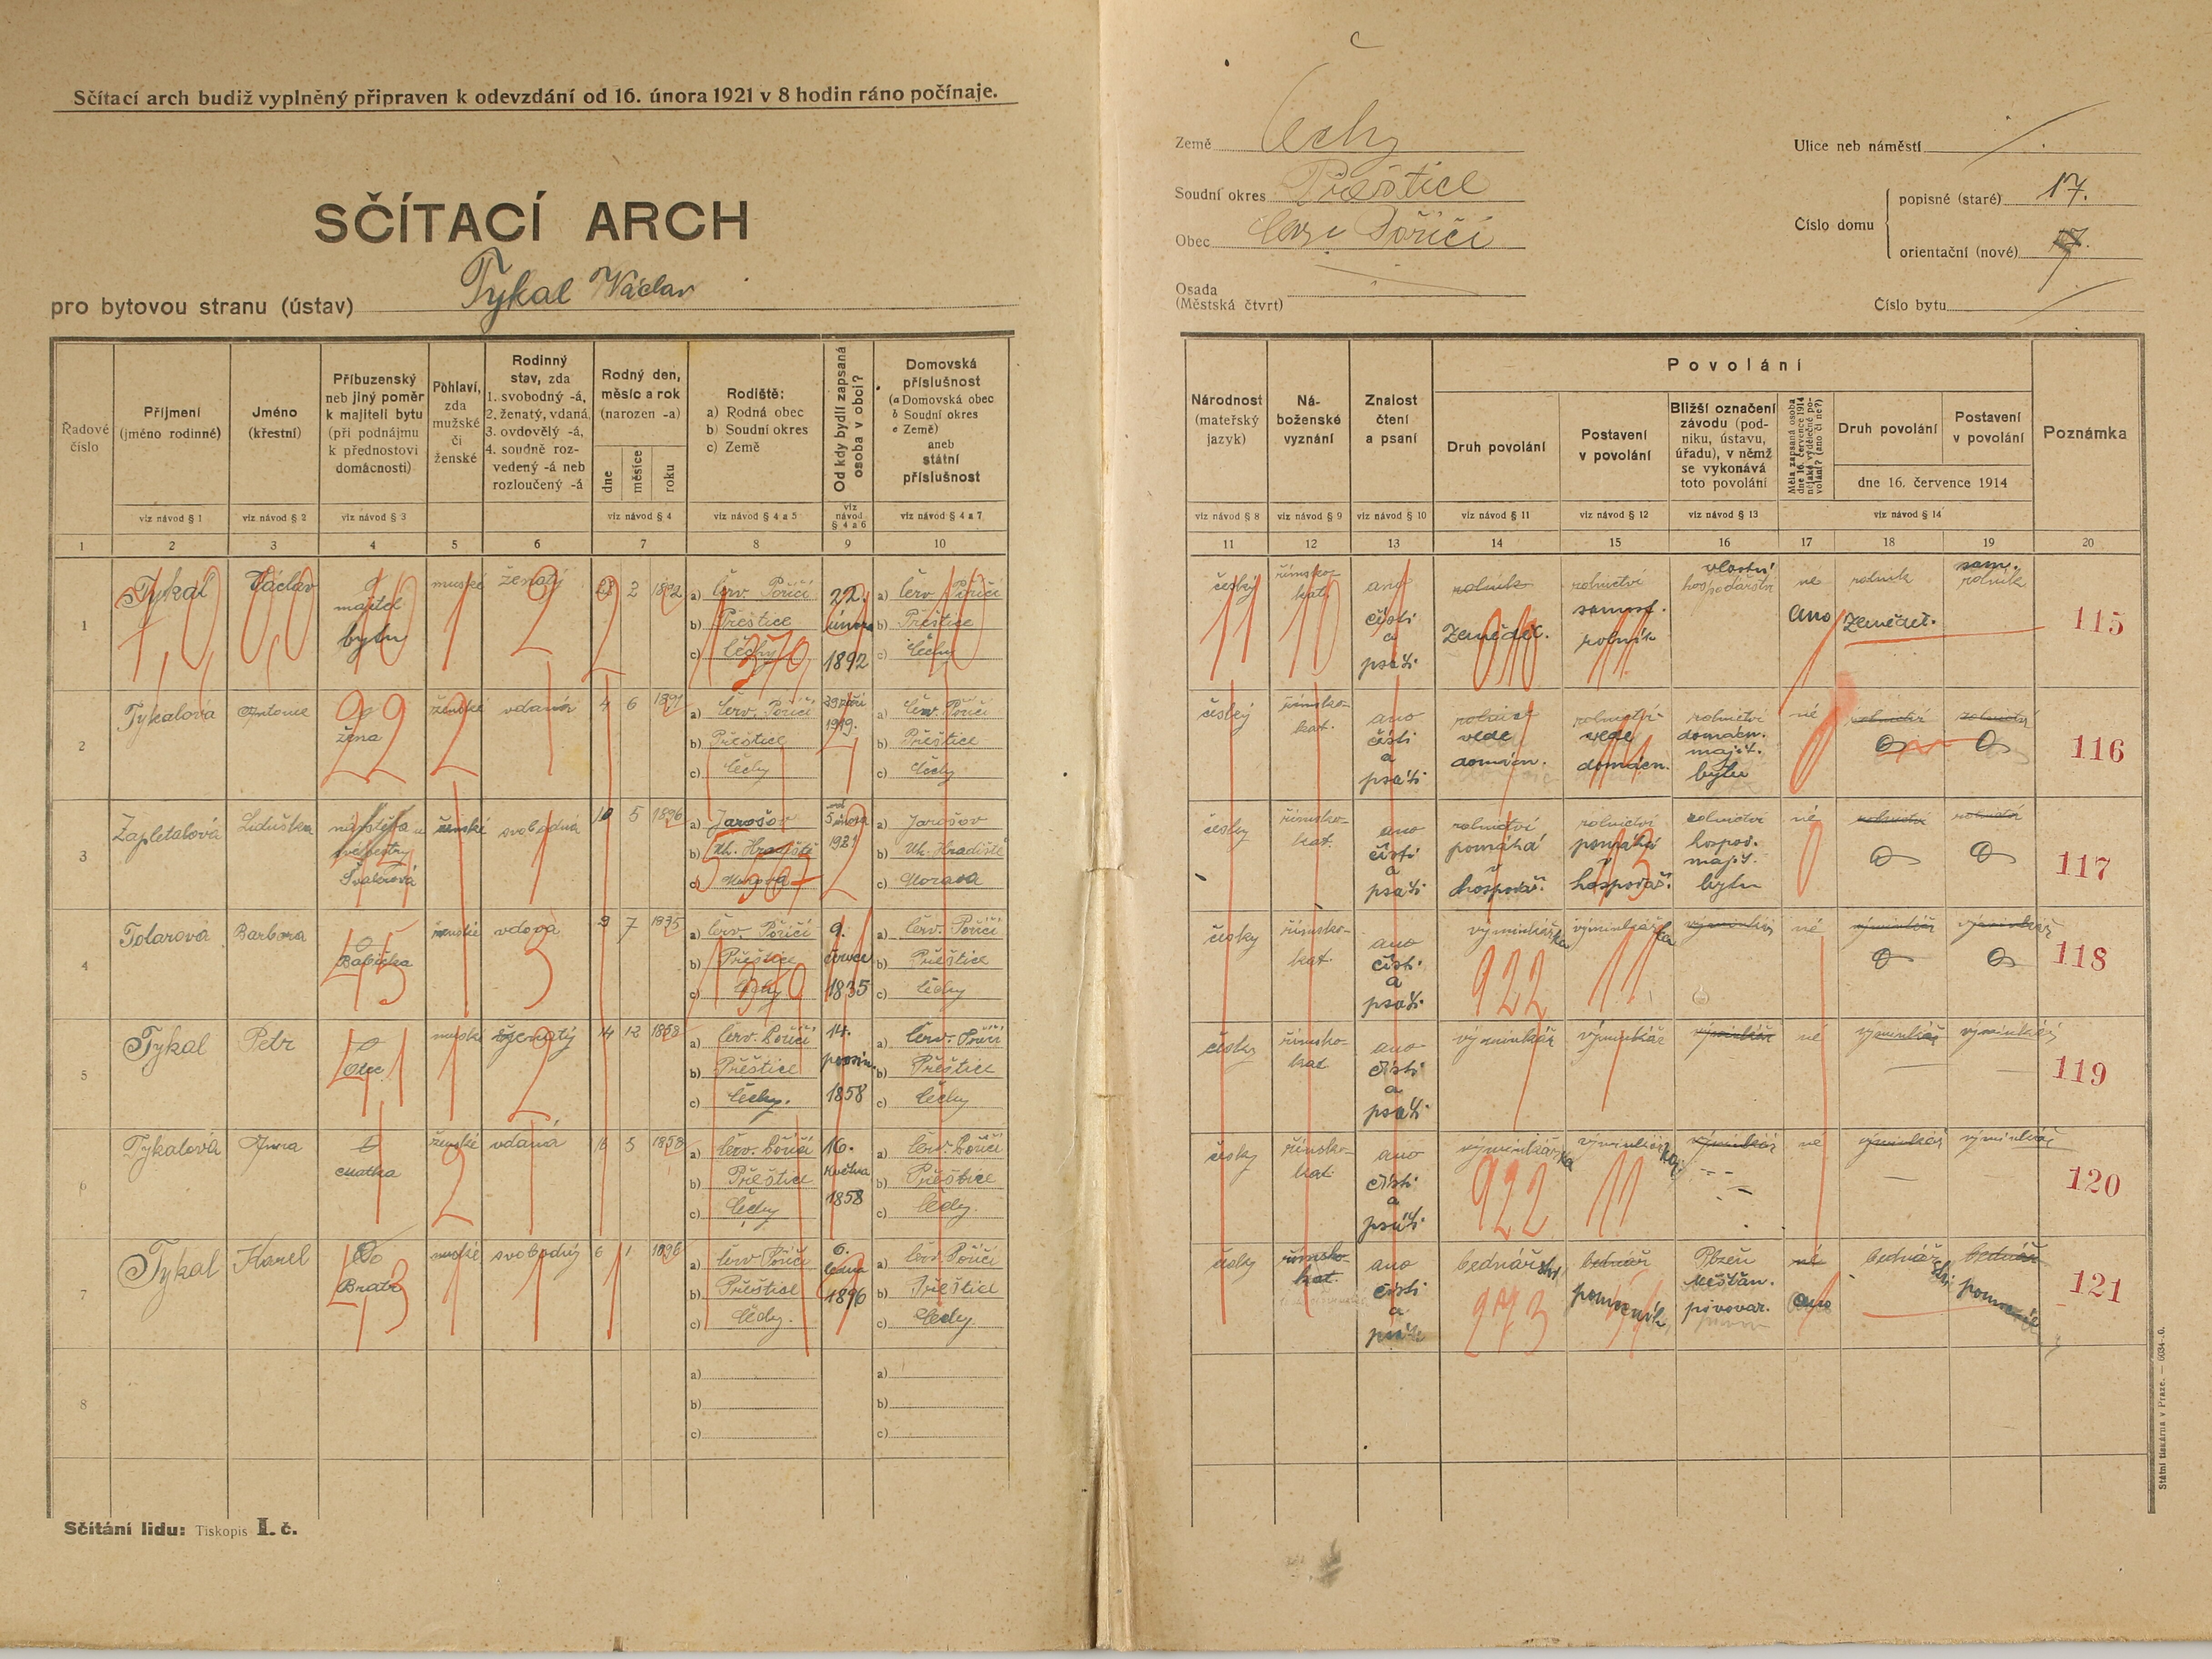 Sčítací arch budiž vyplněný připraven k odevzdání od 16. února 1921 v 8 hodin ráno počínaje.
SČÍTACÍ ARCH
pro bytovou stranu (ústav) Tykal Václav
Země Čechy
Soudní okres Přeštice
Obec Červ. Poříčí
Osada
(Městská čtvrt)
Ulice neb náměstí
Číslo domu
popisné (staré) 17.
orientační (nové) 17.
Číslo bytu
Řadové číslo
Příjmení (jméno rodinné)
Jméno (křestní)
Příbuzenský neb jiný poměr k majiteli bytu (při podnájmu k přednostovi domácnosti)
Pohlaví, zda mužské či ženské
Rodinný stav, zda 1. svobodný -á, 2. ženatý, vdaná 3. ovdovělý -á, 4. soudně rozvedený -á neb rozloučený -á
Rodný den, měsíc a rok (narozen -a)
dne měsíce roku
Rodiště: a) Rodná obec b) Soudní okres c) Země
Od kdy bydlí zapsaná osoba v obci?
Domovská příslušnost (a Domovská obec b Soudní okres c Země) aneb státní příslušnost
Národnost (mateřský jazyk)
Náboženské vyznání
Znalost čtení a psaní
Povolání
Druh povolání
Postavení v povolání
Bližší označení závodu (podniku, ústavu, úřadu), v němž se vykonává toto povolání
Měla zapsaná osoba dne 16. července 1914 nějaké výdělečné povolání? (ano či ne?)
Druh povolání
Postavení v povolání
dne 16. července 1914
Poznámka
viz návod § 1 viz návod § 2 viz návod § 3 viz návod § 4 viz návod § 4 a 5 viz návod § 4 a 6 viz návod § 4 a 7
viz návod § 8 viz návod § 9 viz návod § 10 viz návod § 11 viz návod § 12 viz návod § 13 viz návod § 14
1 2 3 4 5 6 7 8 9 10 11 12 13 14 15 16 17 18 19 20
1 Tykal Václav majitel bytu mužské ženatý 2 1892
a) Červ. Poříčí b) Přeštice c) Čechy
22. února 1892
a) Červ. Poříčí b) Přeštice c) Čechy
český římsko-kat. ano čísti a psáti rolník Zeměděl. rolnictví samost. rolník vlastní hospodářství né ano rolník Zeměděl. sam. rolník 115
2 Tykalová Antonie žena ženské vdaná 4 6 1897
a) Červ. Poříčí b) Přeštice c) Čechy
29 září 1919.
a) Červ. Poříčí b) Přeštice c) Čechy
český římsko-kat. ano čísti a psáti vede domácn. rolnictví vede domácn. rolnictví domácn. majit. bytu né rolnictví rolnictví 116
3 Zapletalová Liduška ženské svobodná 10 5 1896
a) Jarošov b) Uh. Hradiště c) Morava
od 5 února 1921
a) Jarošov b) Uh. Hradiště c) Morava
česky římsko-kat. ano čísti a psáti rolnictví pomáhá v hospodář. rolnictví pomáhá v hospodář. rolnictví hospod. majit. bytu né rolnictví rolnictví 117
4 Tolarová Barbora Babička ženské vdova 9 7 1835
a) Červ. Poříčí b) Přeštice c) Čechy
9. července 1835
a) Červ. Poříčí b) Přeštice c) Čechy
česky římsko-kat. ano čísti a psáti výminkářka výminkářka výminkář né výminkář výminkář 118
5 Tykal Petr Otec mužské ženatý 14 12 1858
a) Červ. Poříčí b) Přeštice c) Čechy.
14. prosin. 1858
a) Červ. Poříčí b) Přeštice c) Čechy
česky římsko-kat ano čísti a psáti výminkář výminkář výminkář né výminkář výminkář 119
6 Tykalová Anna matka ženské vdaná 16 5 1858
a) Červ. Poříčí b) Přeštice c) Čechy
16. května 1858
a) Červ. Poříčí b) Přeštice c) Čechy.
česky římsko-kat. ano čísti a psáti výminkářka výminkářka výminkář né výminkář výminkář 120
7 Tykal Karel Bratr mužské svobodný 6 1 1896
a) Červ. Poříčí b) Přeštice c) Čechy.
6. ledna 1896
a) Červ. Poříčí b) Přeštice c) Čechy
česky římsko-kat. ano čísti a psáti bednářství bednář pomocník Plzeň Měšťan. pivovar. né ano bednářství bednář pomocník 121
8
a) b) c)
a) b) c)
Sčítání lidu: Tiskopis I. č.
Státní tiskárna v Praze. — 6034-.0.